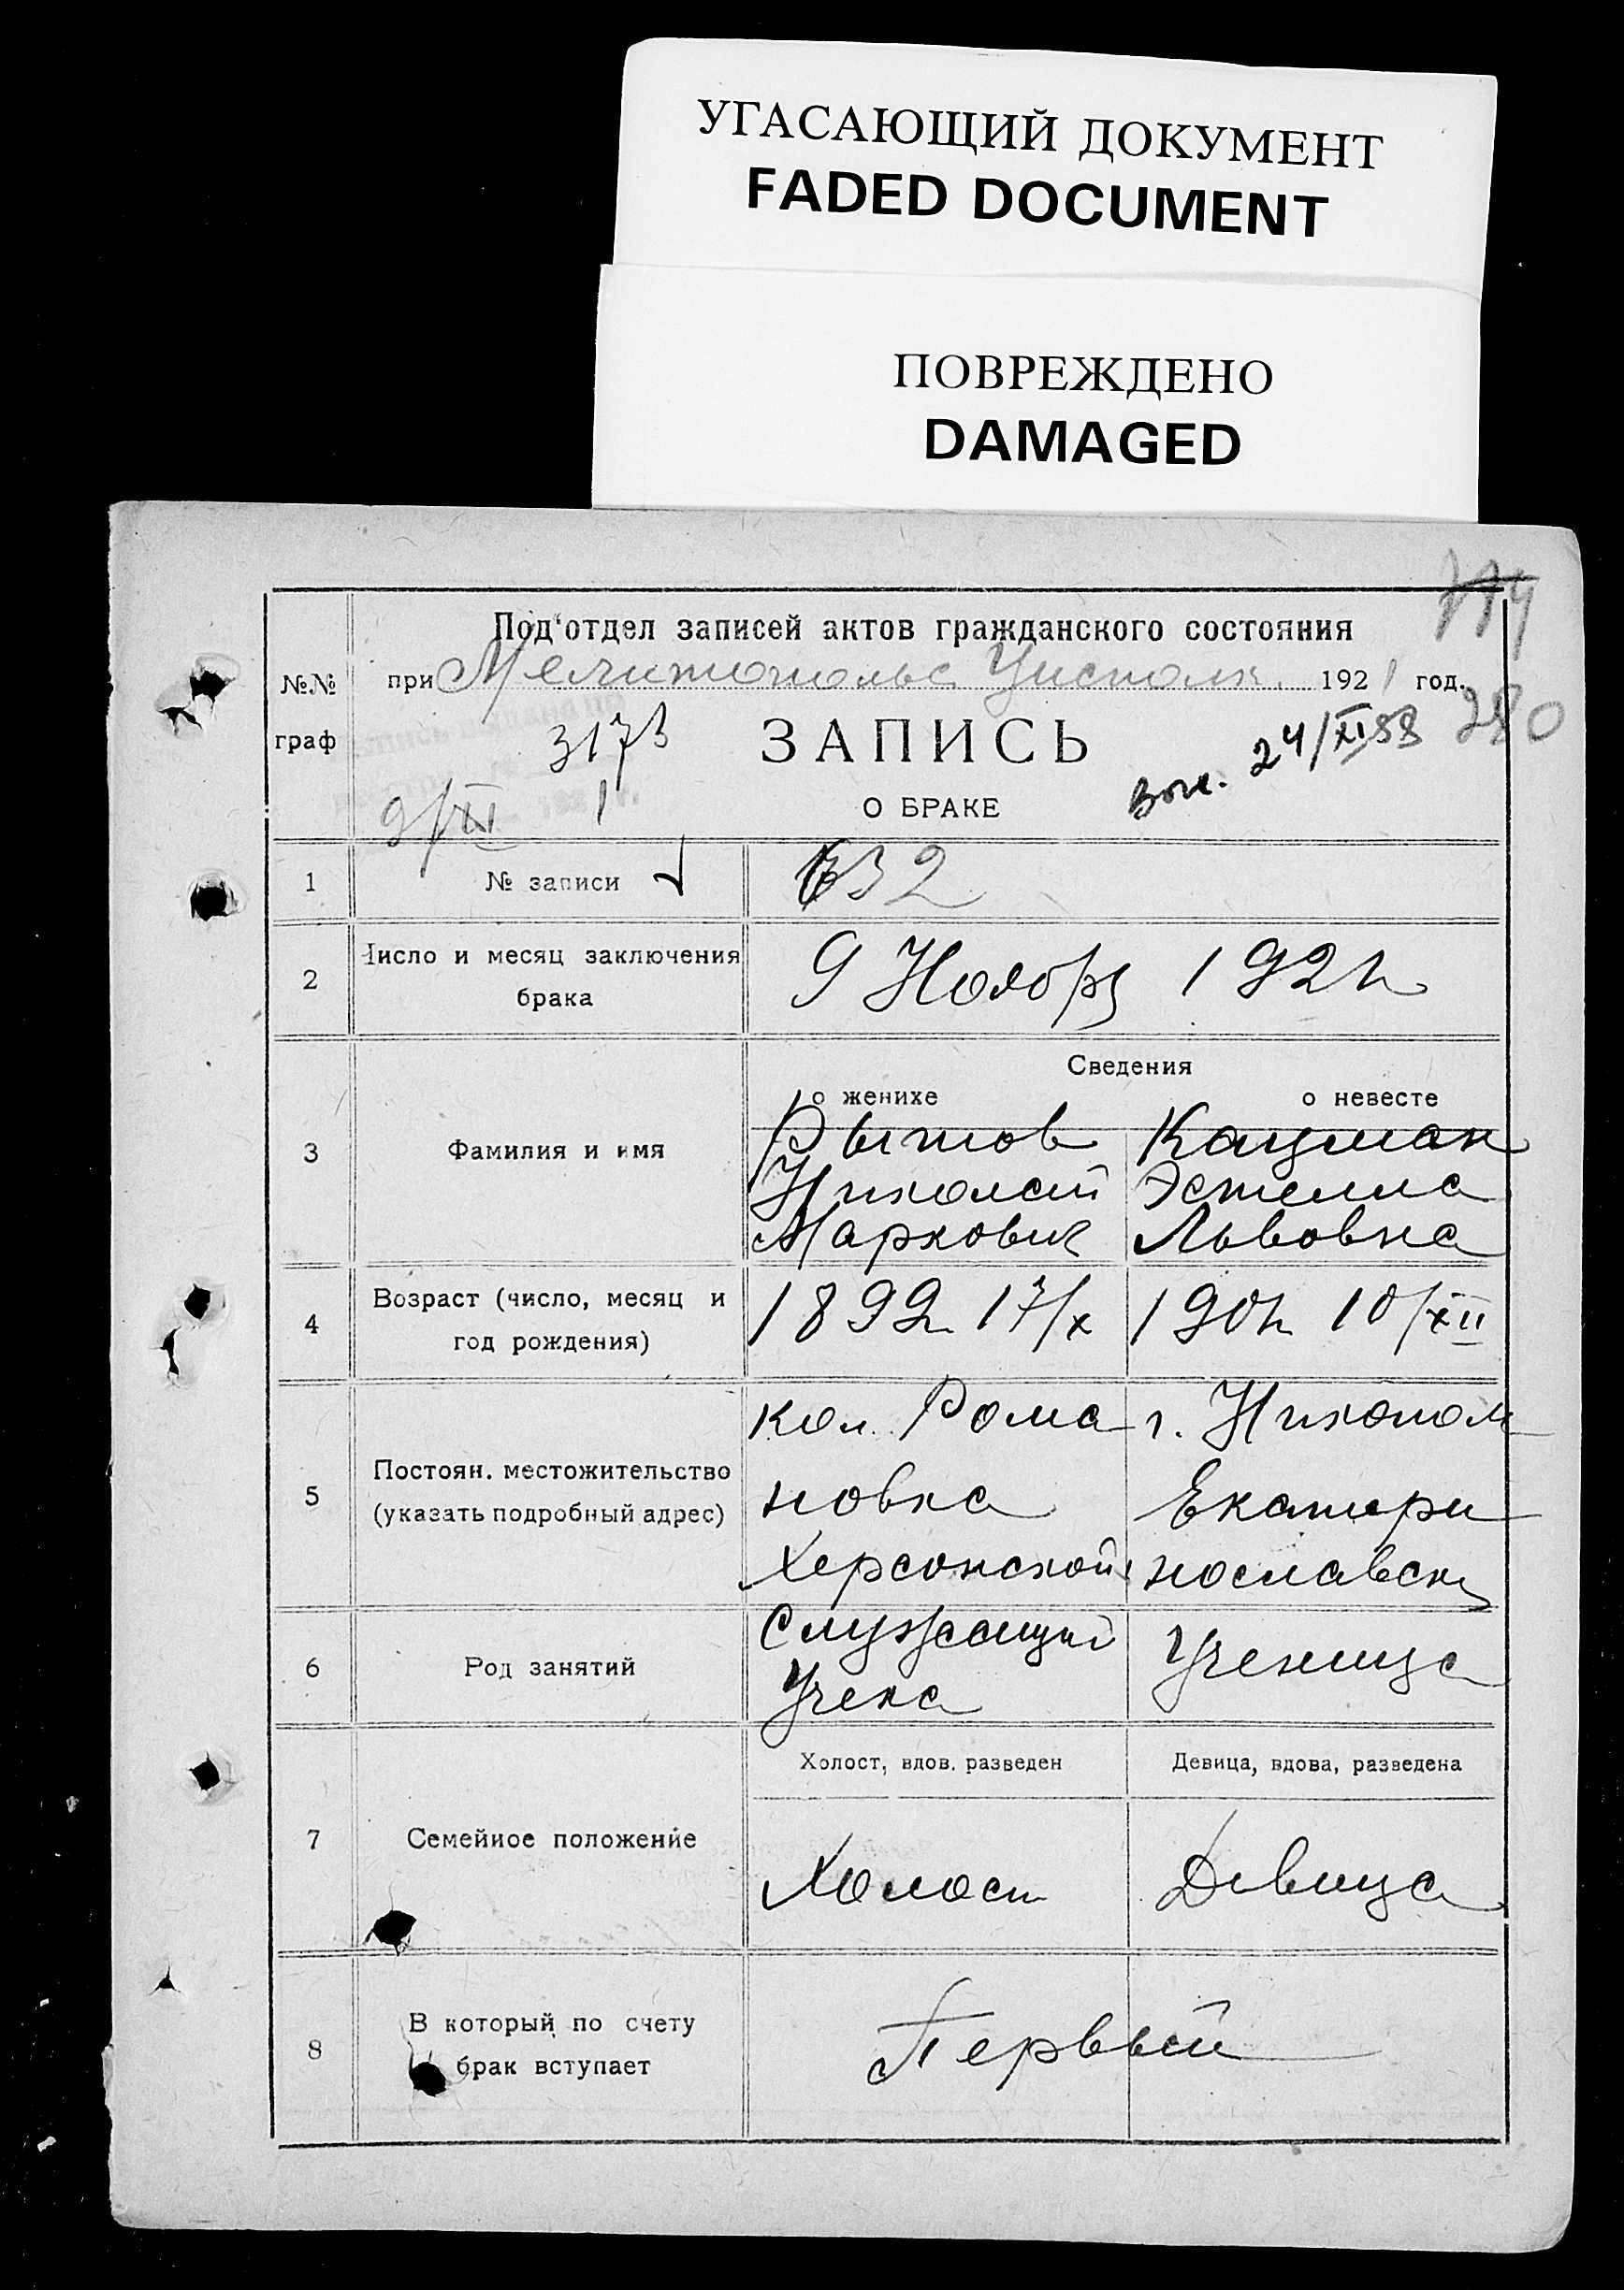 УГАСАЮЩИЙ ДОКУМЕНТ
FADED DOCUMENT
ПОВРЕЖДЕНО
DAMAGED
Под'отдел записей актов гражданского состояния
№№ граф
при Мелитопольс Уисполк. 1921 год.
280
3173
ЗАПИСЬ
24/XI 58
9/XI 1
О БРАКЕ
1 № записи 632
2 Число и месяц заключения брака
9 Ноября 1921
Сведения
о женихе о невесте
3 Фамилия и имя
Рытов Кацман
Николай Эстелла
Маркович Львовна
4 Возраст (число, месяц и год рождения)
1892 17/X 1901 10/XII
5 Постоян. местожительство (указать подробный адрес)
кол. Рома г. Никопол
новка Екатери
Херсонской нославск
6 Род занятий
Служащий Ученица
Учека
7 Семейное положение
Холост, вдов. разведен Девица, вдова, разведена
Холост Девица
8 В который по счету брак вступает
Первый